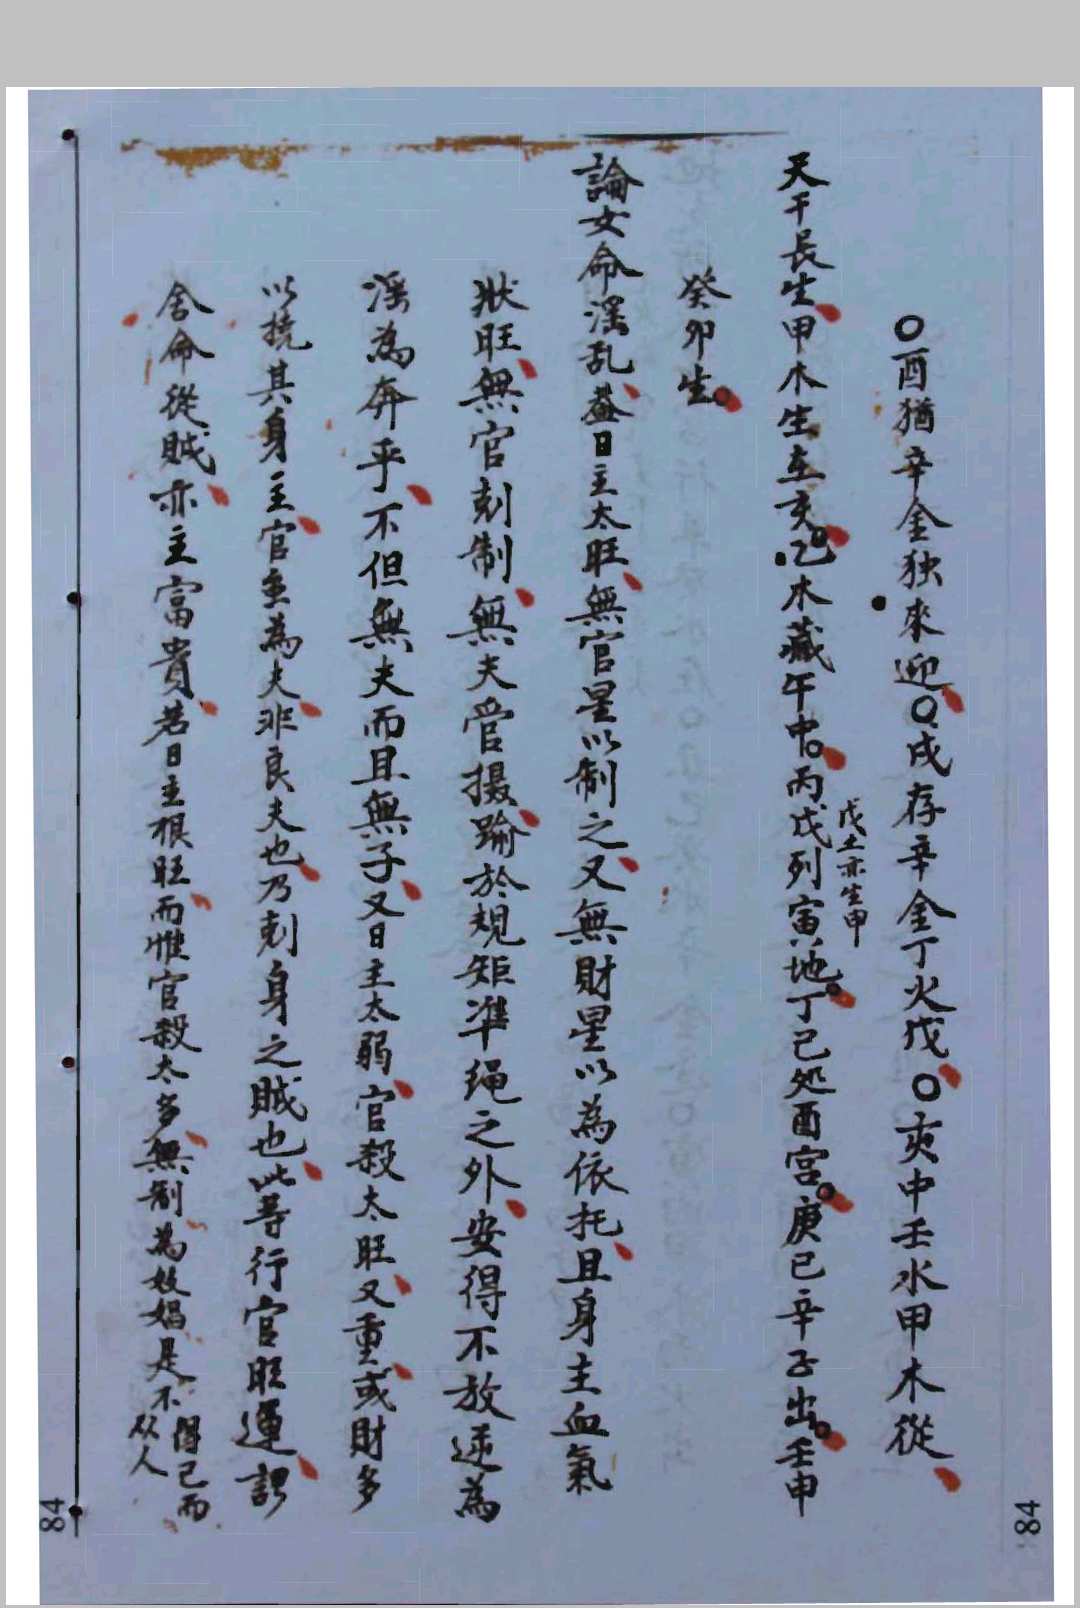 ○酉猶辛金独來迎○戌存辛金丁火戊○亥中壬水甲木從
天干長生甲木生在亥○乙木藏午中○丙戊列寅地○丁己処酉宫○庚巳辛子出○壬申
戊土亦生申
癸卯生○
論女命淫乱盖日主太旺無官星以制之又無財星以為依托且身主血氣
狀旺無官剋制無夫管摄踰於規矩準绳之外安得不放逆為
淫為奔乎不但無夫而且無子又日主太弱官殺太旺又重或財多
以撓其身主官重為夫非良夫也乃剋身之賊也此等行官旺運謂
舍命從賊亦主富貴若日主根旺而惟官殺太多無制為妓娼是不得已而从人
84
84